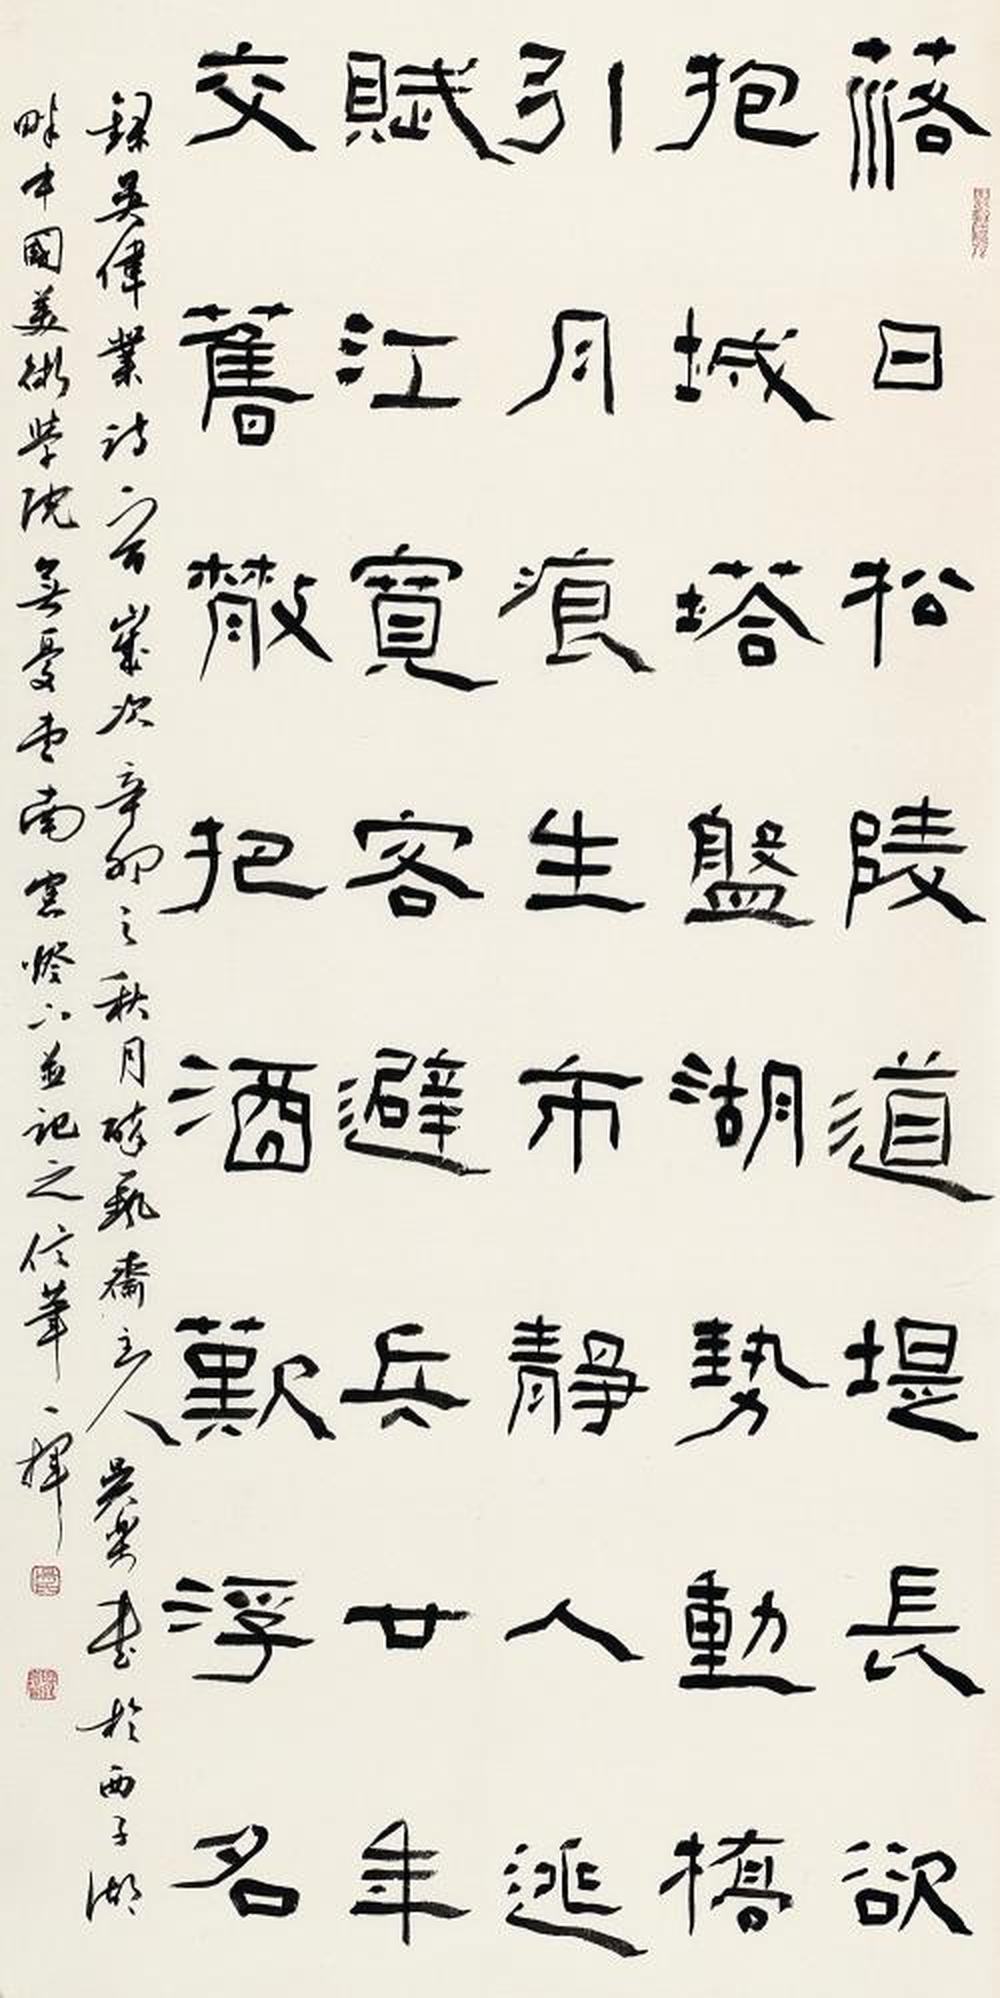 落日松陵道堤長欲
抱城塔盤湖勢動橋
引月痕生市靜人逃
賦江寬客避兵廿年
交舊散把酒歎浮名
錄吳偉業詩一首歲次辛卯之秋月齋主人吳書於西子湖
畔中國美術學院無憂堂南窗燈下並記之信筆一揮